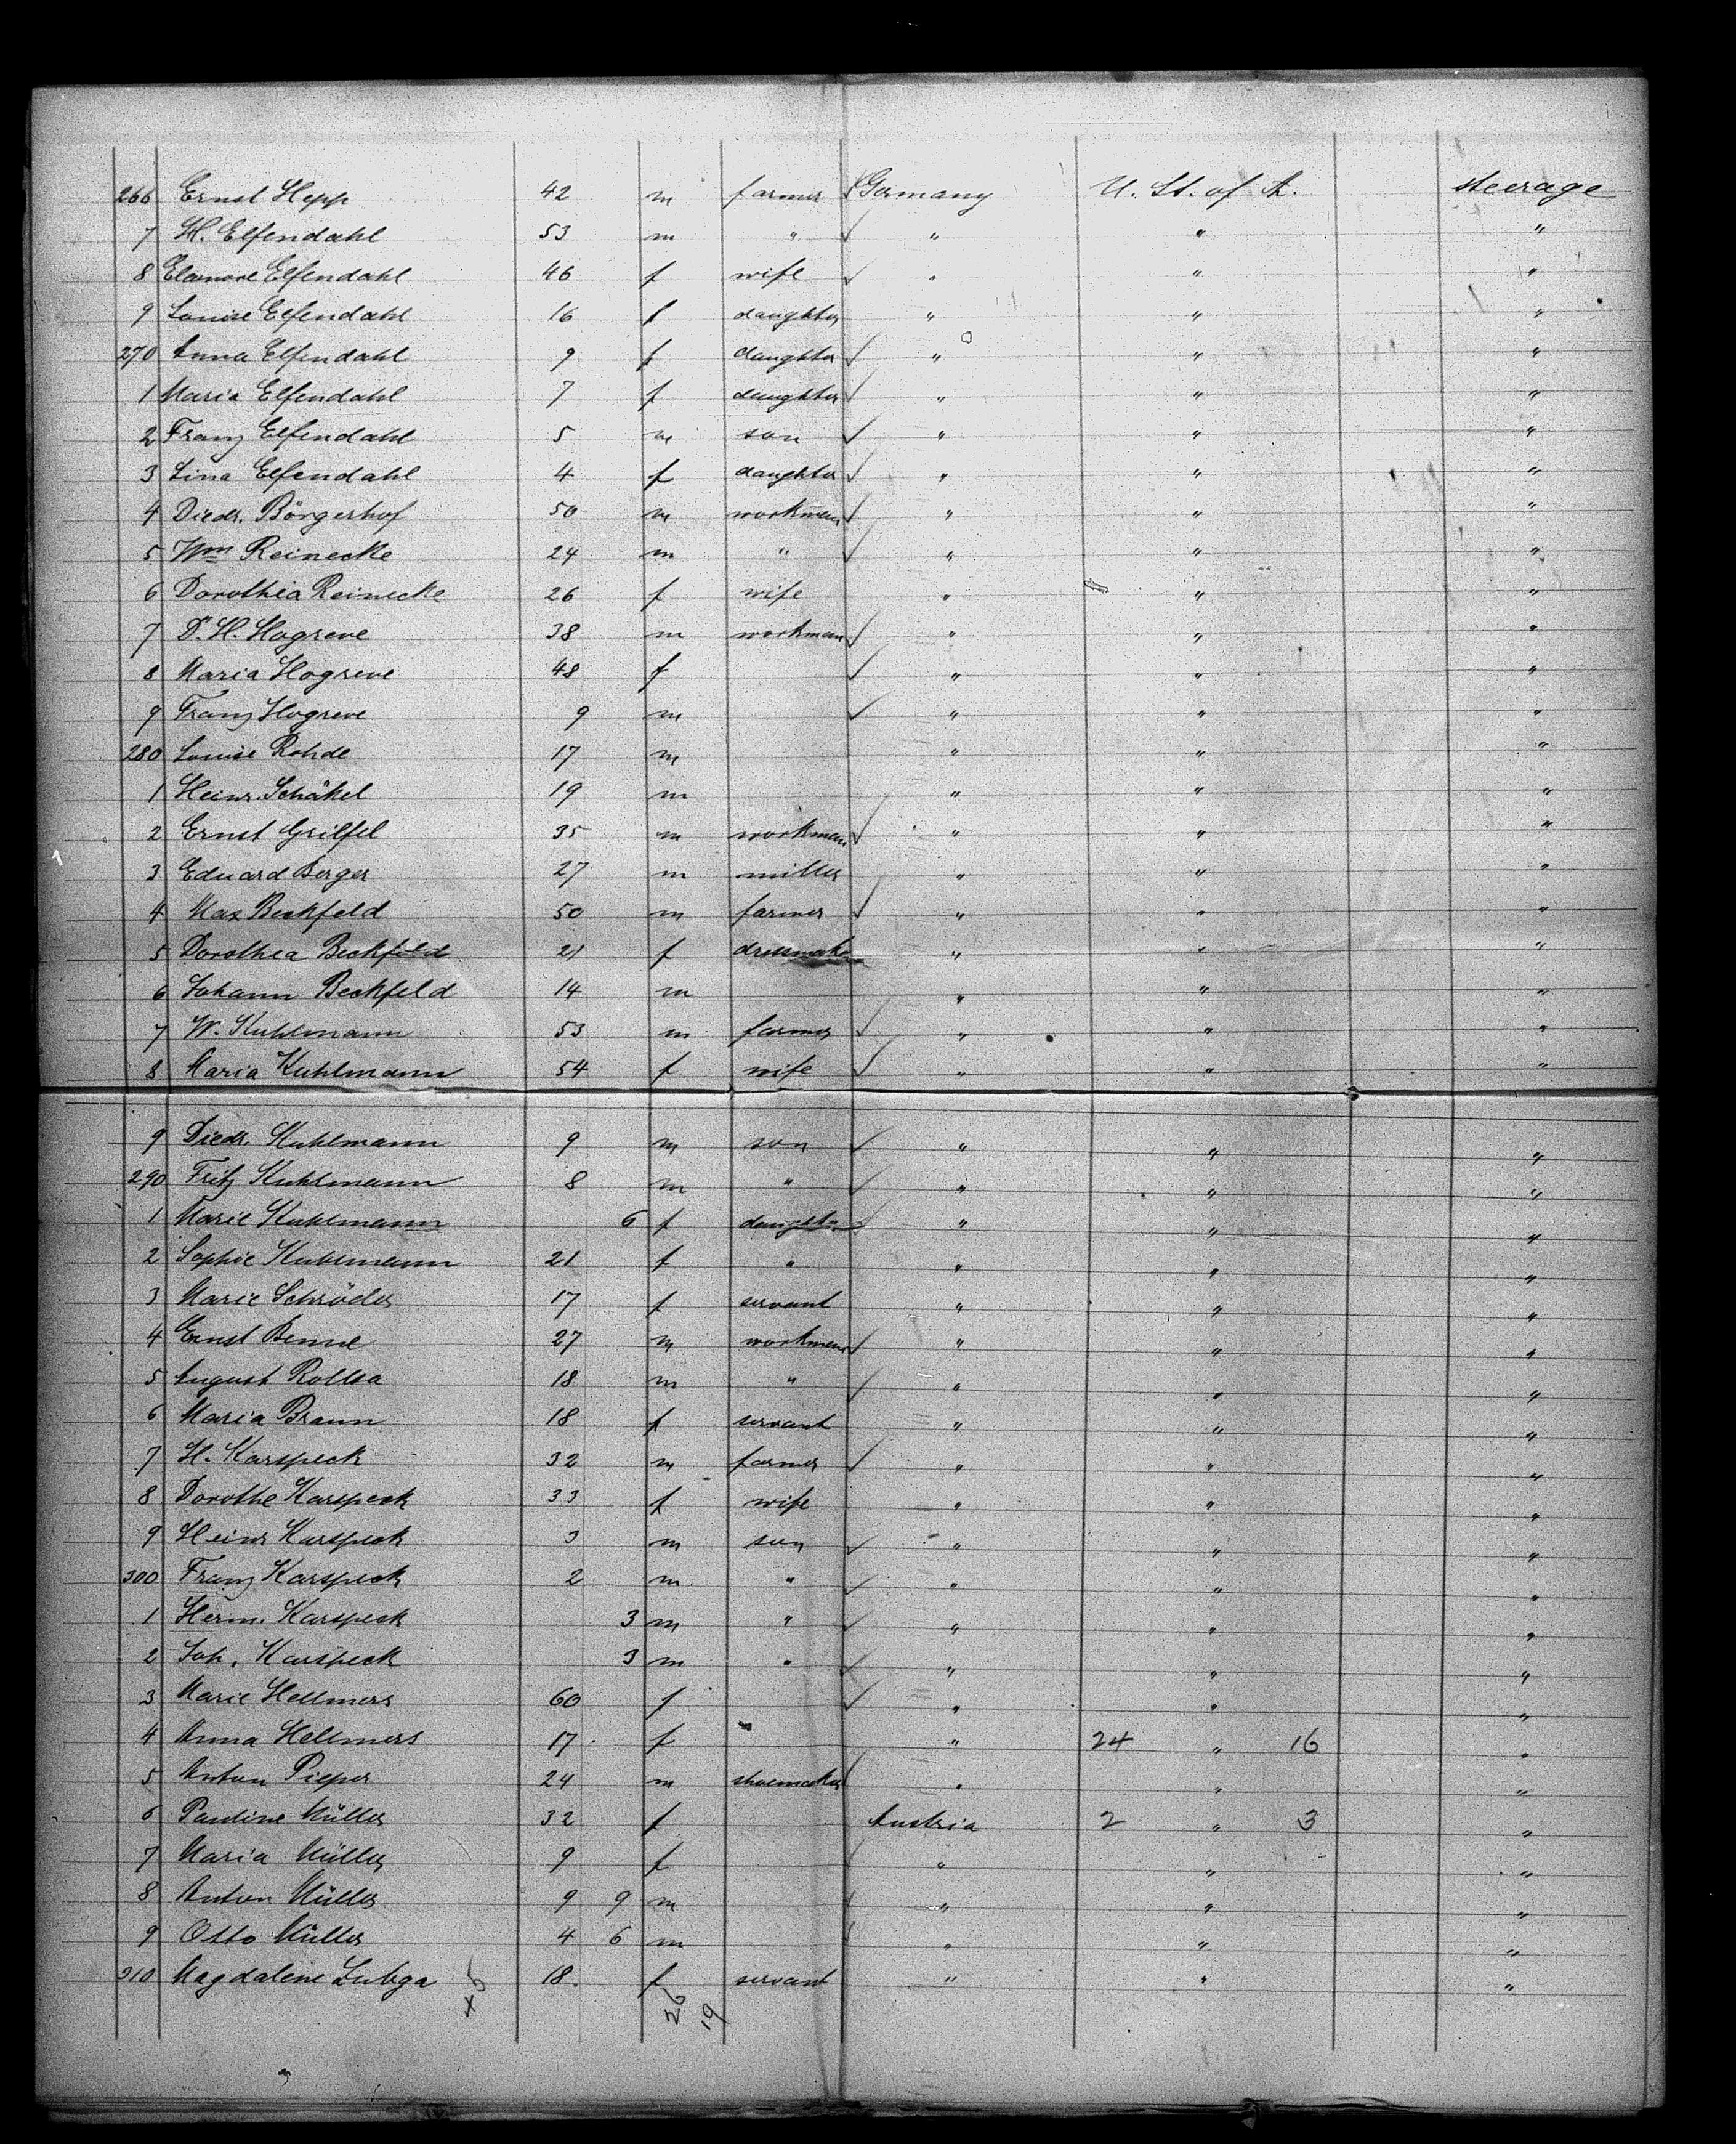 266 Ernst Hepp 42 m farmer Germany U. St. of A. steerage
7 H. Elfendahl 53 m " ✓ " " "
8 Eleonore Elfendahl 46 f wife ✓ " " "
9 Louise Elfendahl 16 f daughter " " "
270 Anna Elfendahl 9 f daughter ✓ " " "
1 Maria Elfendahl 7 f daughter ✓ " " "
2 Franz Elfendahl 5 m son ✓ " " "
3 Lina Elfendahl 4 f daughter ✓ " " "
4 Diedr. Börgerhof 50 m workman ✓ " " "
5 Wm Reinecke 24 m " ✓ " " "
6 Dorothea Reinecke 26 f wife " " "
7 D. H. Hogreve 38 m workman ✓ " " "
8 Maria Hogreve 48 f ✓ " " "
9 Franz Hogreve 9 m ✓ " " "
280 Louise Rohde 17 m " " "
1 Heinr. Schäkel 19 m " " "
2 Ernst 35 m workman ✓ " " "
3 Eduard Berger 27 m miller " " "
4 Max Beckfeld 50 m farmer ✓ " " "
5 Dorothea Beckfeld 21 f dressmaker " " "
6 Johann Beckfeld 14 m " " "
7 W. Kuhlmann 53 m farmer ✓ " " "
8 Maria Kuhlmann 54 f wife ✓ " " "
9 Diedr. Kuhlmann 9 m son ✓ " " "
290 Fritz Kuhlmann 8 m " ✓ " " "
1 Marie Kuhlmann 6 f daughter ✓ " " "
2 Sophie Kuhlmann 21 f " " " "
3 Marie Schröder 17 f servant " " "
4 Ernst Benne 27 m workman ✓ " " "
5 August 18 m " ✓ " " "
6 Maria Braun 18 f servant " " "
7 H. Karspeck 32 m farmer ✓ " " "
8 Dorothe Karspeck 33 f wife " " "
9 Heinr Karspeck 3 m son ✓ " " "
300 Franz Karspeck 2 m " ✓ " " "
1 Herm. Karspeck 3 m " ✓ " " "
2 Joh. Karspeck 3 m " ✓ " " "
3 Marie Hellmers 60 f ✓ " " "
4 Anna Hellmers 17 f " 24 " 16 "
5 Anton Pieper 24 m shoemaker ✓ " " "
6 Pauline Müller 32 f Austria 2 " 3 "
7 Maria Müller 9 f " " "
8 Anton Müller 9 9 m " " "
9 Otto Müller 4 6 m " " "
310 Magdalene 18 f servant " " "
45 26 19